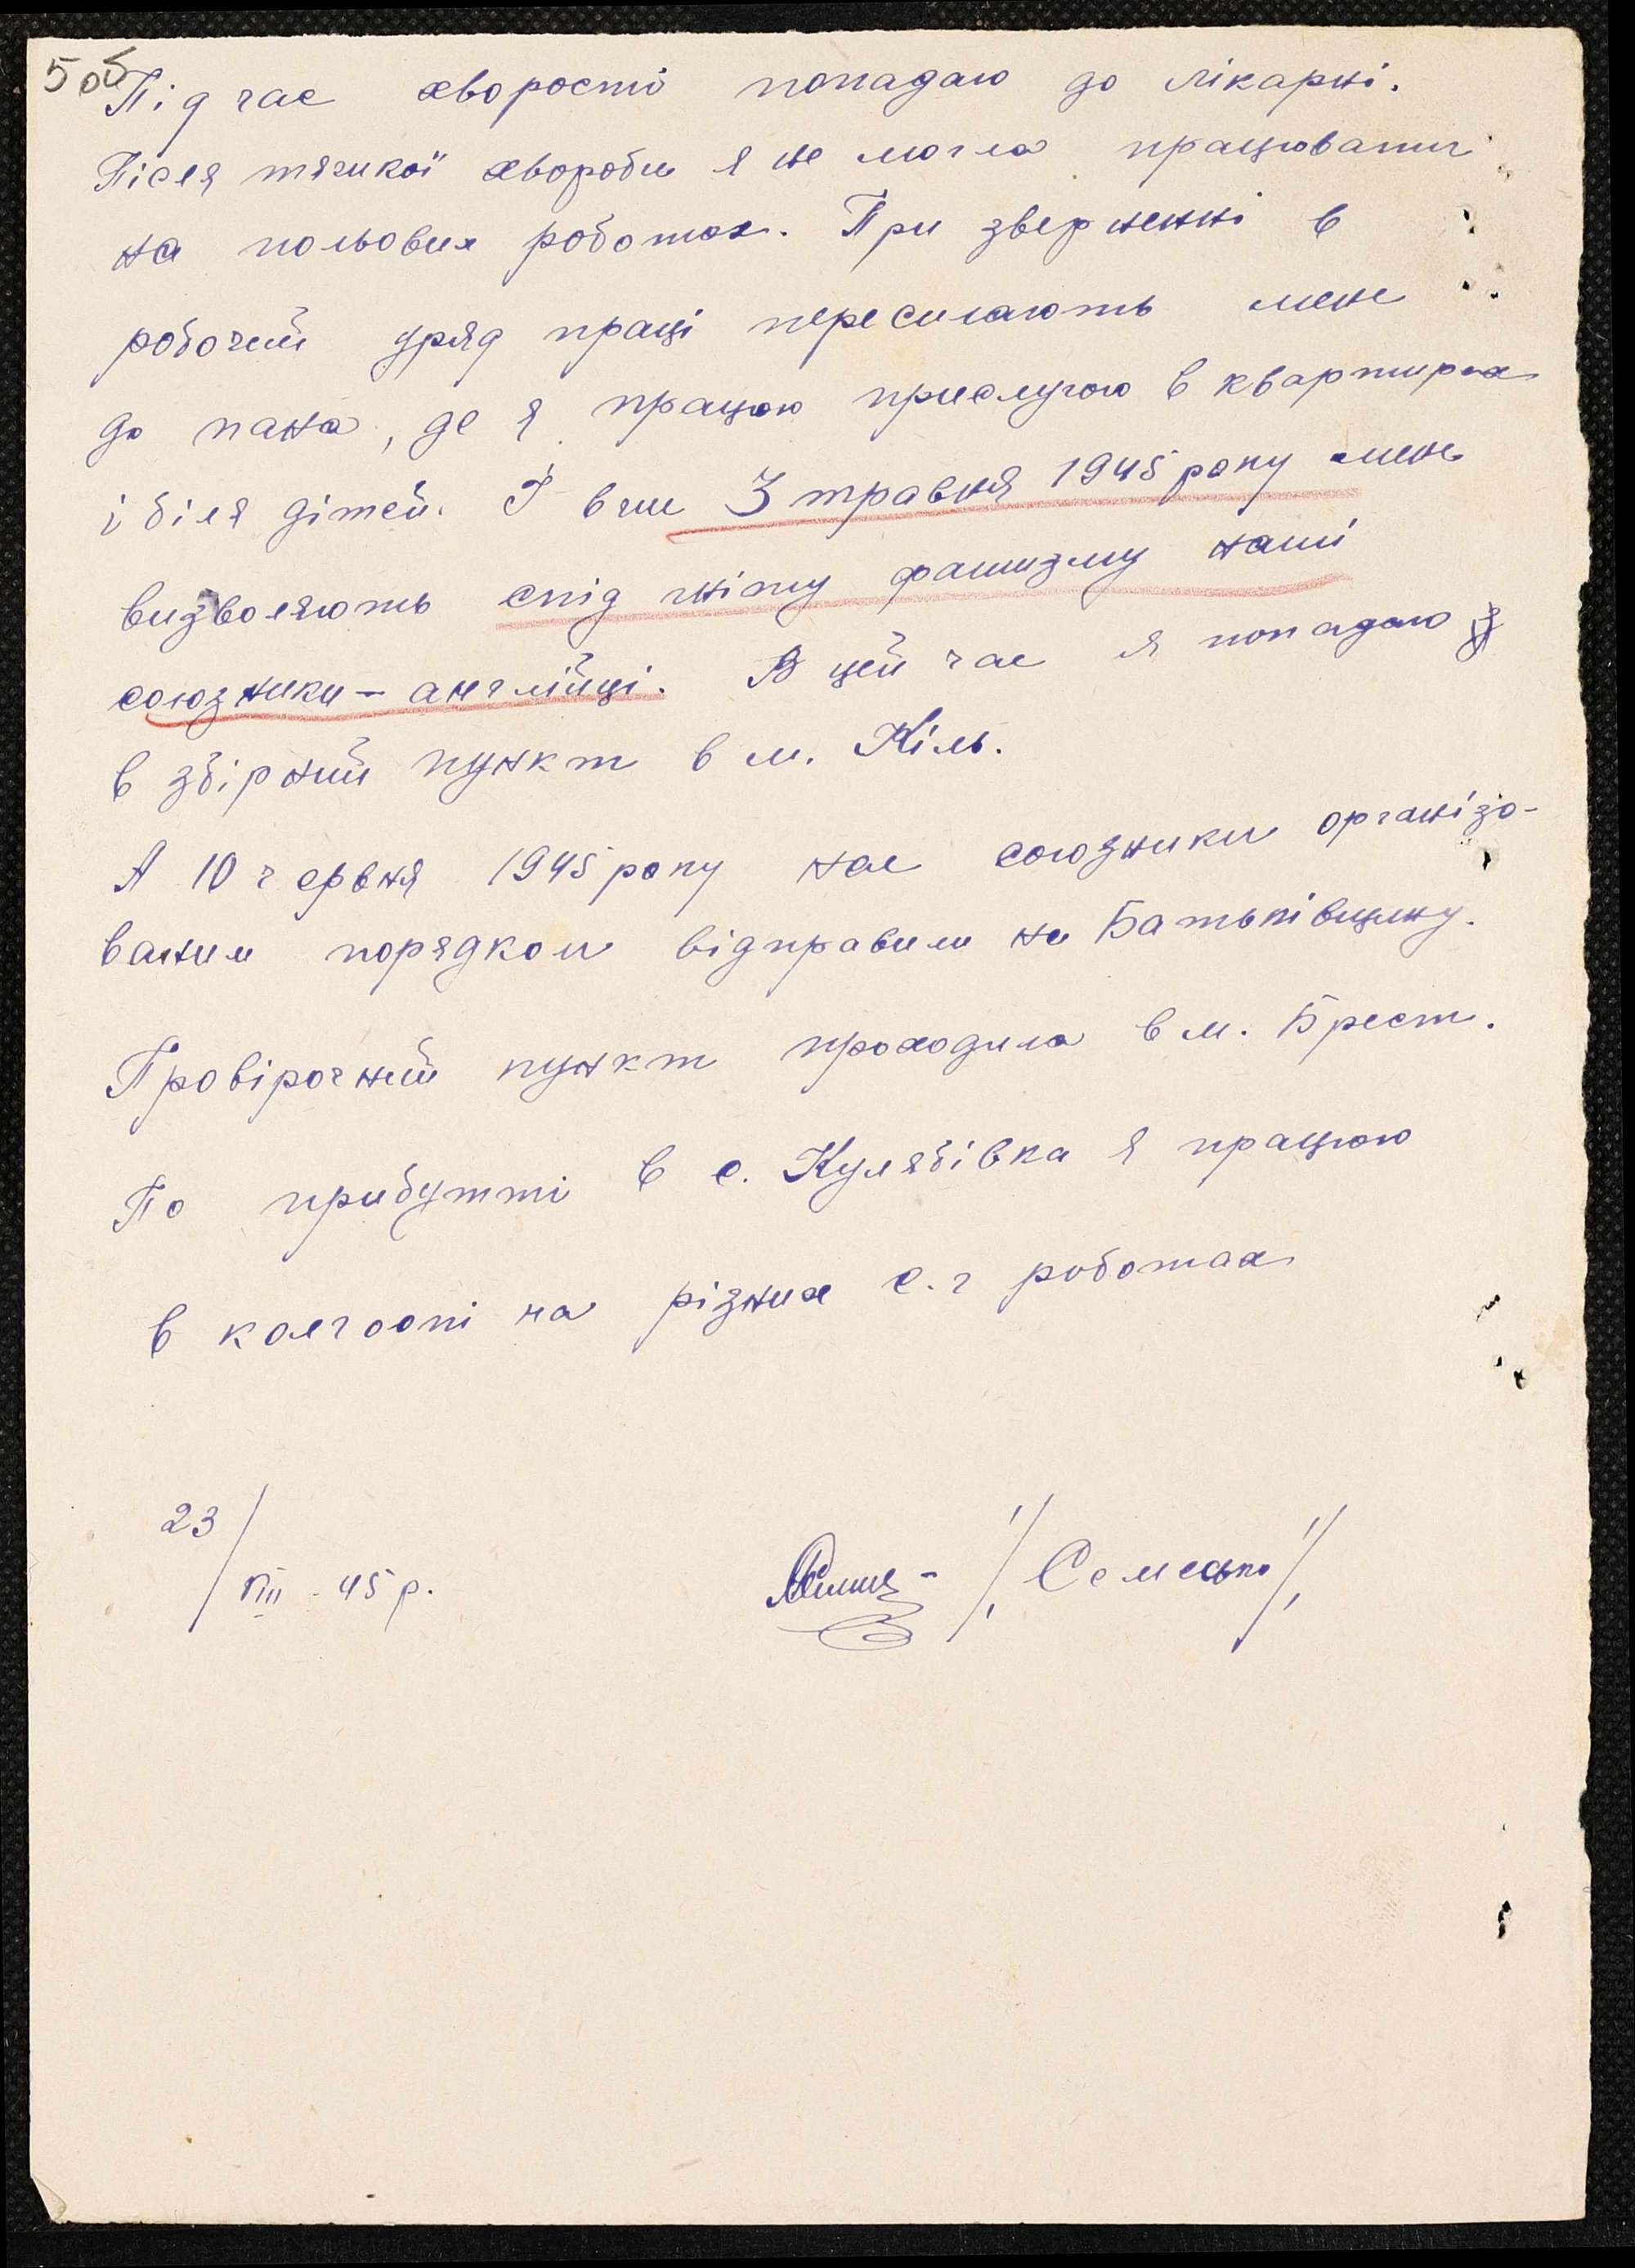 5 об
Під час хворості попадаю до лікарні.
Після тяжкої хвороби я не могла працювати
на польових роботах. При зверненні в
робочий уряд праці пересилають мене
до пана, де я працюю прислугою в квартирах
і біля дітей. І вже 3 травня 1945 року мене
визволяють спід гніту фашизму наші
союзники – англійці. В цей час я попадаю
в збірний пункт в м. Кіль.
А 10 червня 1945 року нас союзники організо-
ваним порядком відправили на Батьківщину.
Провірочний пункт проходила в м. Брест.
По прибутті в с. Кулябівка я працюю
в колгоспі на різних с.г роботах
23/VIII - 45 р.
/Семесько/